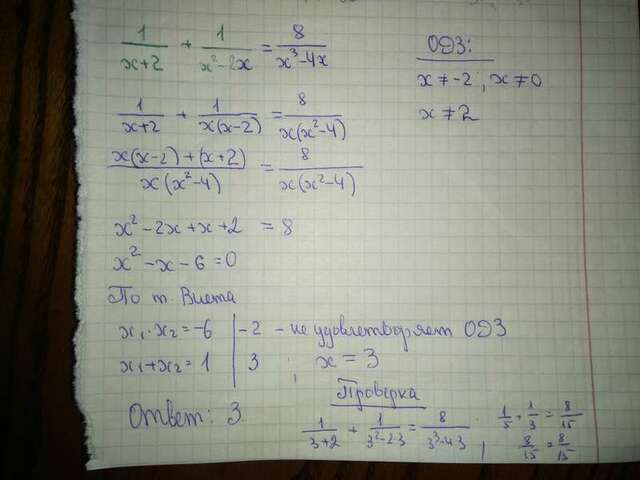 1/(x+2) + 1/(x²-2x) = 8/(x³-4x)
ОДЗ:
x ≠ -2 ; x ≠ 0
x ≠ 2
1/(x+2) + 1/(x(x-2)) = 8/(x(x²-4))
(x(x-2)+(x+2))/(x(x²-4)) = 8/(x(x²-4))
x² - 2x + x + 2 = 8
x² - x - 6 = 0
По т. Виета
x₁·x₂ = -6 | -2 - не удовлетворяет ОДЗ
x₁+x₂ = 1 | 3 ; x = 3
Ответ: 3.
Проверка
1/(3+2) + 1/(3²-2·3) = 8/(3³-4·3) ; 1/5 + 1/3 = 8/15
; 8/15 = 8/15